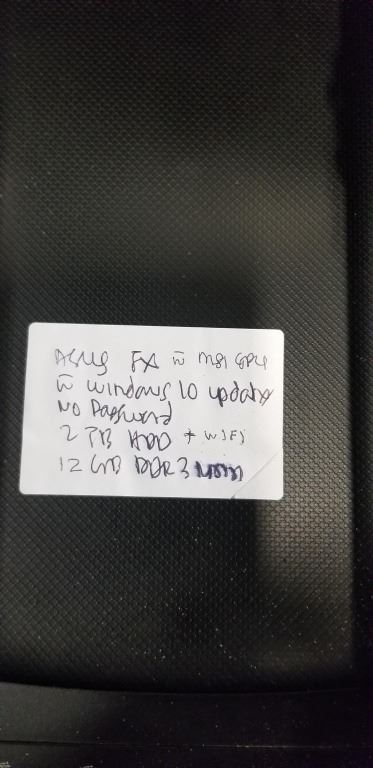 ASUS FX w MSI GPU
w windows 10 updates
No Password
2 TB HDD + WIFI
12 GB DDR3